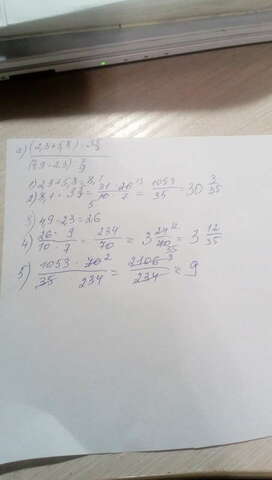 a) (2,3+5,8) · 3 5/7
(4,9-2,3) · 7/9
1) 2,3+5,8=8,1
2) 8,1 · 3 5/7 = 81/10 · 26/7 = 1053/35 = 30 3/35
3) 4,9-2,3=2,6
4) 26 · 9 / 10 · 7 = 234/70 = 3 24/70 = 3 12/35
5) 1053 · 70 / 35 · 234 = 2106/234 = 9